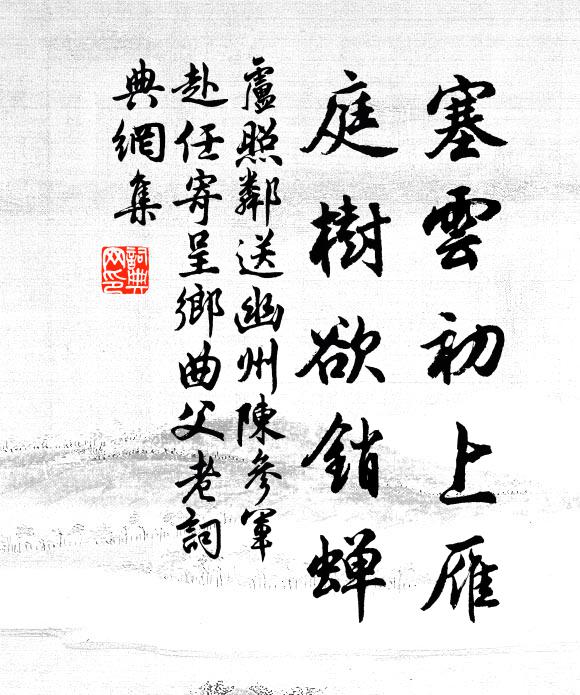 塞雲初上雁
庭樹欲銷蟬
盧照鄰送幽州陳參軍
赴任寄呈鄉曲父老詞
典網集
詞典
网印